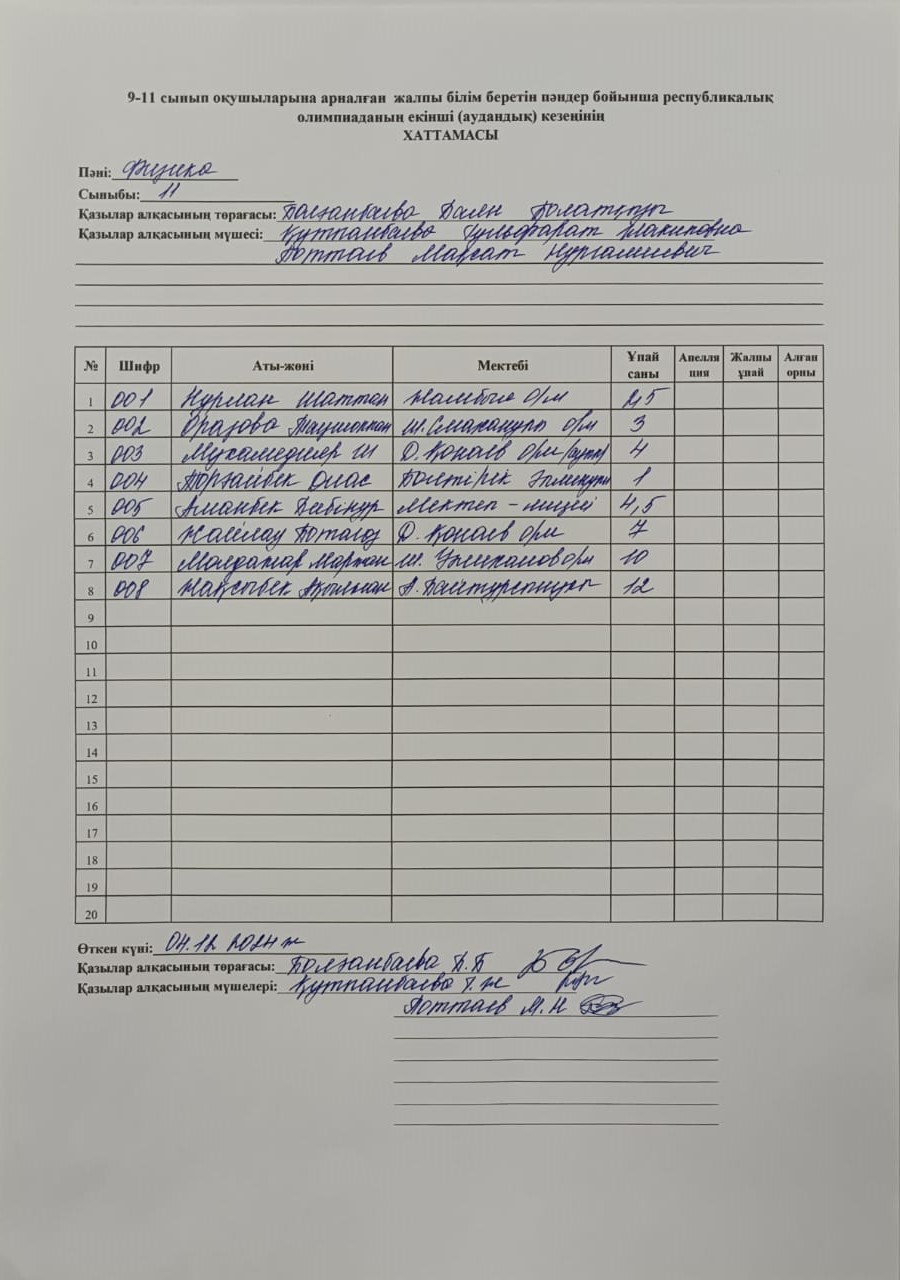 9-11 сынып оқушыларына арналған жалпы білім беретін пәндер бойынша республикалық
олимпиаданың екінші (аудандық) кезеңінің
ХАТТАМАСЫ
Пәні: Физика
Сыныбы: 11
Қазылар алқасының төрағасы: Болғанбаева Болатқызы
Қазылар алқасының мүшесі: Құттанбаева Гульфарат
Поттаев Марсат Нургалиевич
№ Шифр Аты-жөні Мектебі Ұпай саны Апелляция Жалпы ұпай Алған орны
1 001 Нурлан Шаттық Жамбыл о/м 2,5
2 002 Оразова о/м 3
3 003 Мухамедияр Ш Д. Қонаев о/м 4
4 004 Торғайбек Бөлтірік 1
5 005 Аманбек Бибінұр Мектеп-лицей 4,5
6 006 Жайлау Ботагөз Д. Қонаев о/м 7
7 007 Маржан Ш. Уәлиханов о/м 10
8 008 Жақсыбек А. Байтұрсынұлы 12
9
10
11
12
13
14
15
16
17
18
19
20
Өткен күні: 04.12 2024 ж
Қазылар алқасының төрағасы: Болғанбаева Б.Б
Қазылар алқасының мүшелері: Құттанбаева Г.Ж
Поттаев М.Н